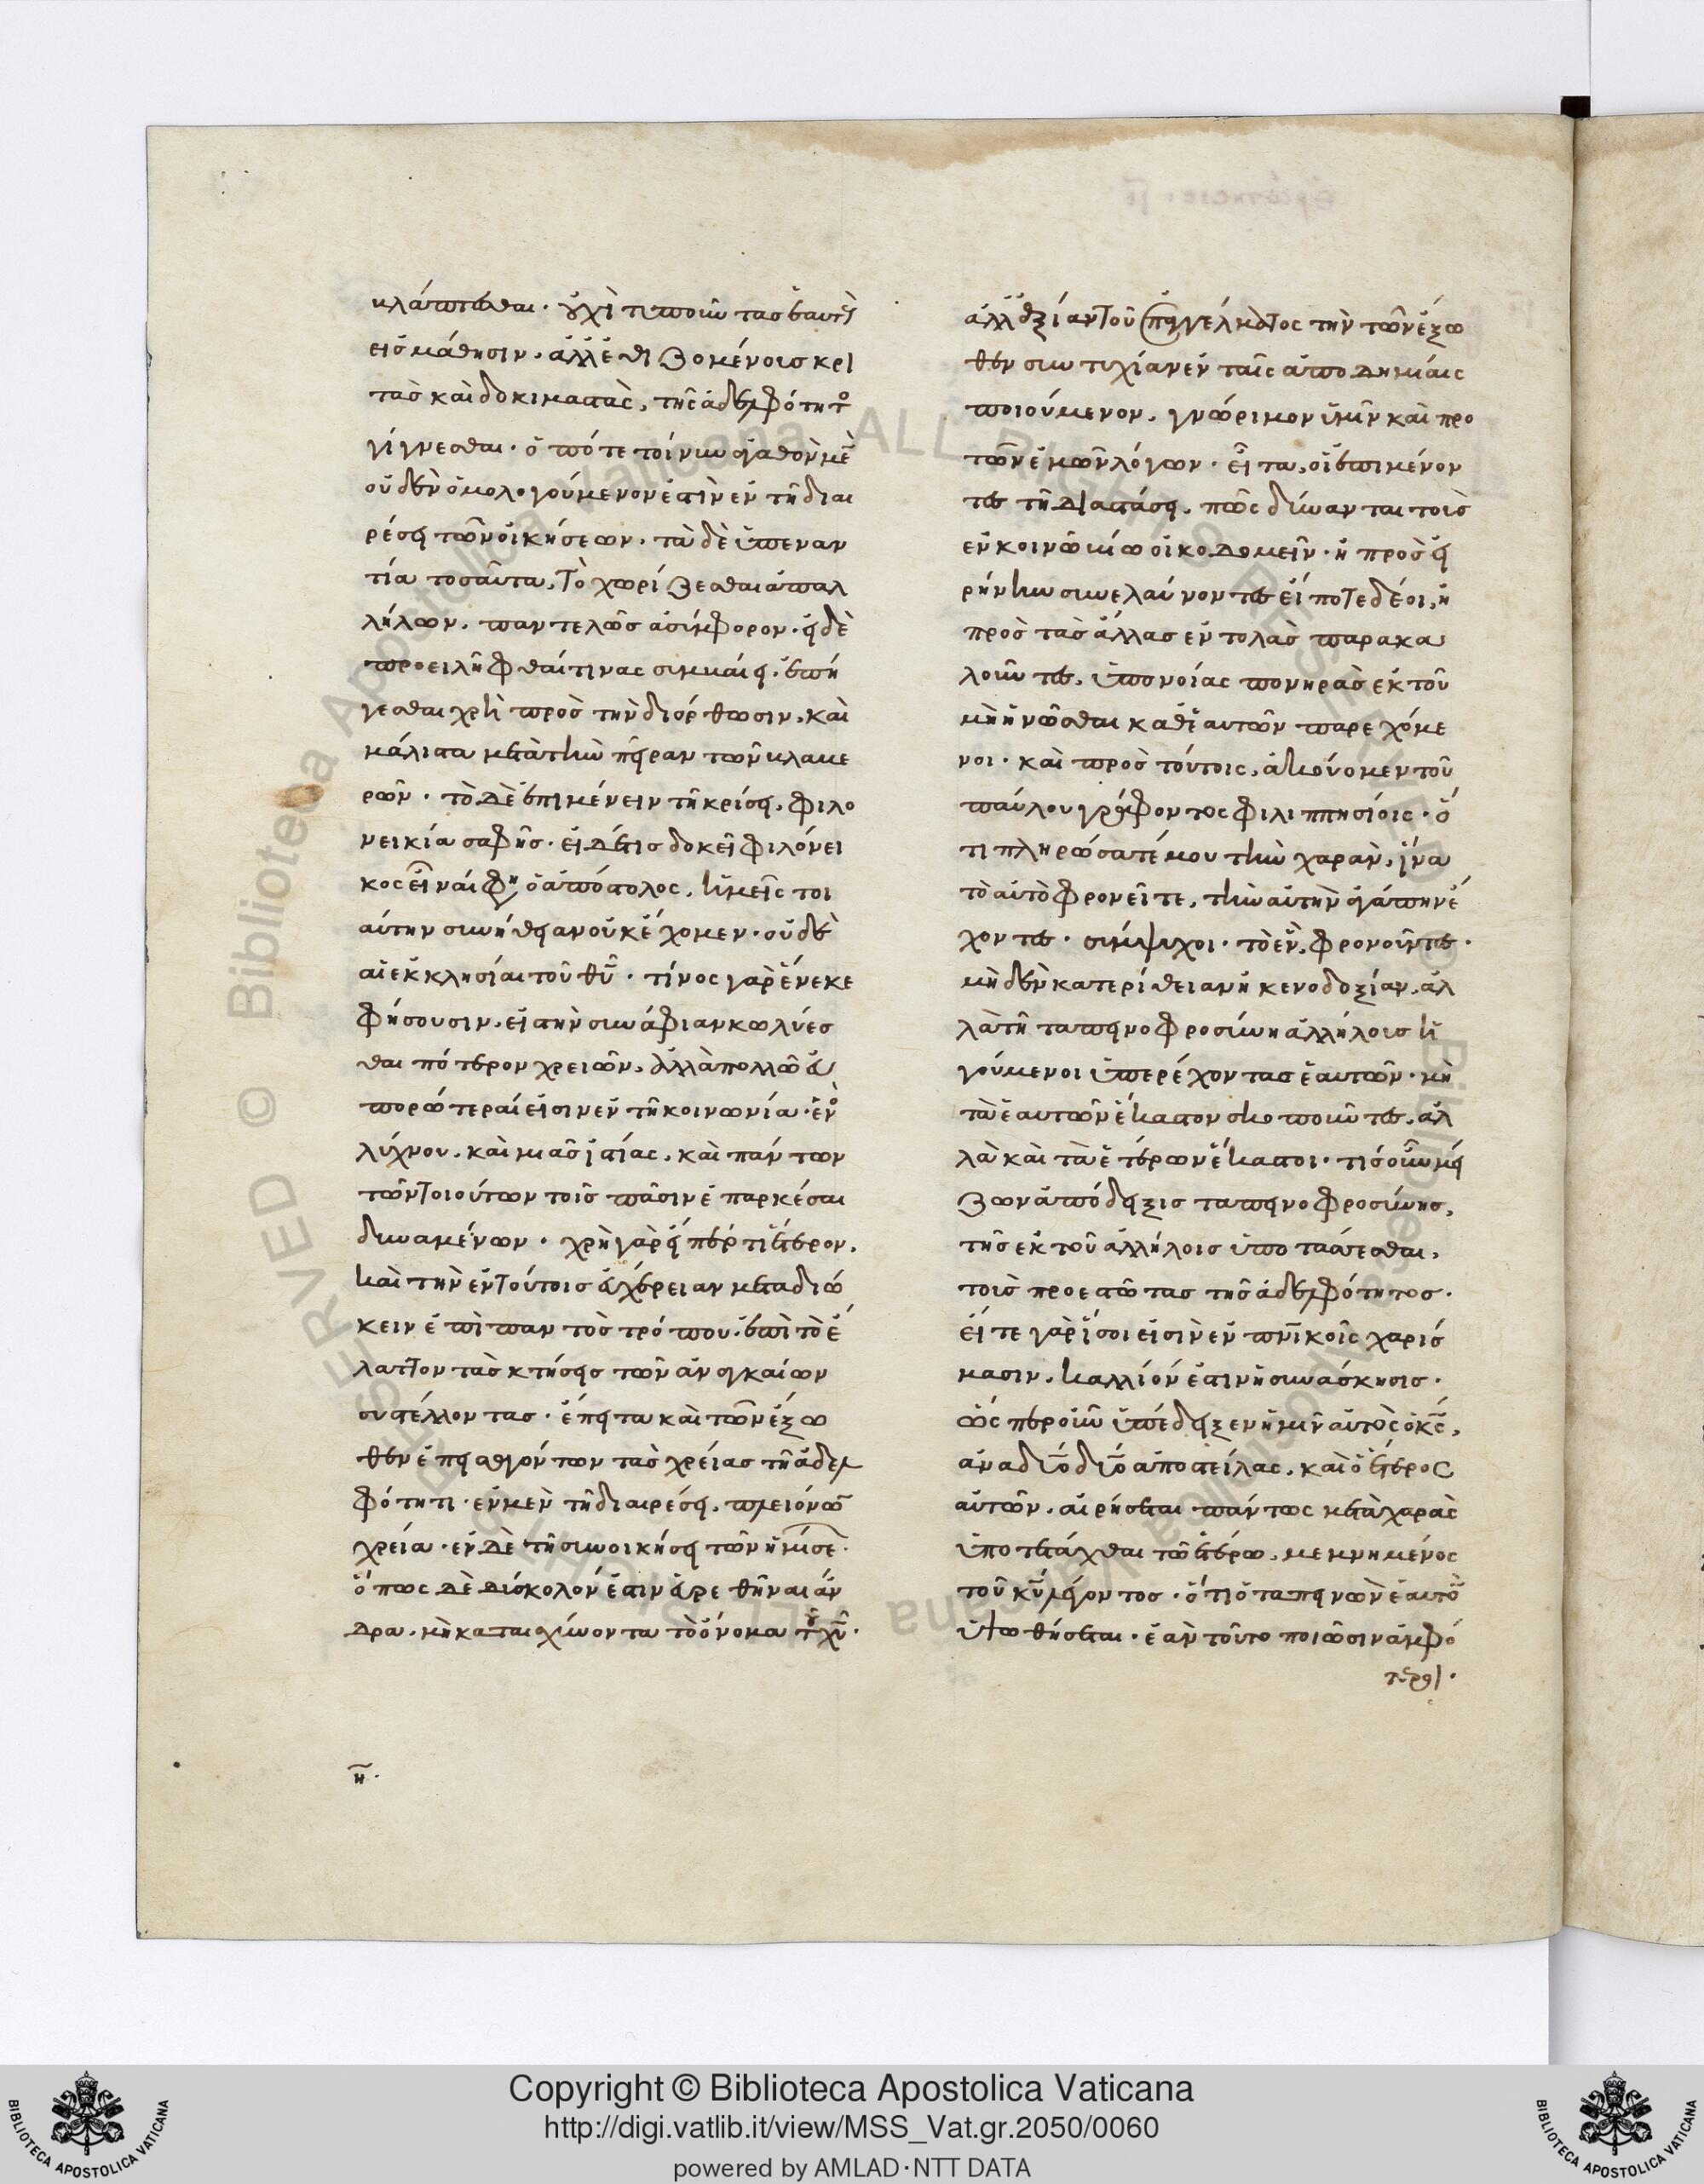 βλάπτεσθαι· οὐχὶ τυποῦν τὰς ἑαυτῆς
εἰς μάθησιν, ἀλλ' ἐθιζομένοις κρι
τὰς καὶ δοκιμαστὰς, τῆς ἀδελφότητος
γίγνεσθαι· ὁπότε τοίνυν ἀγαθὸν μὲν
οὐδὲν ὁμολογούμενον ἐστὶν ἐν τῆ διαι
ρέσει τῶν οἰκήσεων· τὰ δὲ ὑπεναν
τία τοσαῦτα, τὸ χωρίζεσθαι ἀπ' ἀλ
λήλων, παντελῶς ἀσύμφορον· εἰ δὲ
προειλῆφθαί τινας συμβαίη, ἐπεί
γεσθαι χρὴ πρὸς τὴν διόρθωσιν, καὶ
μάλιστα μετὰ τὴν πεῖραν τῶν βλαβε
ρῶν· τὸ δὲ ἐπιμένειν τῆ κρίσει, φιλο
νεικία σαφής· εἰ δέ τις δοκεῖ φιλόνει
κος εἶναί φη ὁ ἀπόστολος, ἡμεῖς τοι
αύτην συνήθειαν οὐκ ἔχομεν· οὐδὲ
αἱ ἐκκλησίαι τοῦ θυ· τίνος γὰρ ἕνεκε
φήσουσιν, εἰ τὴν συνάφιαν κωλύεσ
θαι πότερον χρειῶν, ἀλλὰ πολλῶ εὐ
πορώτεραί εἰσιν ἐν τῆ κοινωνία· ἑνὸς
λύχνου, καὶ μιᾶς ἑστίας, καὶ πάντων
τῶν τοιούτων τοῖς πᾶσιν ἐπαρκέσαι
δυναμένων· χρὴ γὰρ εἴπερ τι ἕτερον,
καὶ τὴν ἐν τούτοις εὐχέρειαν μεταδιώ
κειν ἐπὶ παντὸς τρόπου, ἐπὶ τὸ ἔ
λαττον τὰς κτήσεις τῶν ἀναγκαίων
συστέλλοντας· ἔπειτα καὶ τῶν ἔξω
θεν ἐπεισαγόντων τὰς χρείας τῆ ἀδελ
φότητι· ἐν μὲν τῆ διαιρέσει, πλειόνων
χρεία· ἐν δὲ τῆ συνοικήσει τῶν ἡμίσε·
ὅπως δὲ δύσκολόν ἐστιν εὑρεθῆναι ἄν
δρα, μὴ καταισχύνοντα τὸ ὄνομα τοῦ χυ·
η·
ἀλλ' ἀξίαν τοῦ ἐπαγγέλματος τὴν τῶν ἔξω
θεν συντυχίαν ἐν ταῖς ἀποδημίαις
ποιούμενον, γνώριμον ὑμῖν καὶ πρὸ
τῶν ἐμῶν λόγων· εἶτα, οἱ ἐπιμένον
τες τῆ διαστάσει, πῶς δύνανται τοὺς
ἐν κοινῶ βίω οἰκοδομεῖν· ἢ πρὸς εἰ
ρήνην συνελαύνοντες εἴ ποτε δέοι, ἢ
πρὸς τὰς ἄλλας ἐντολὰς παρακα
λοῦντες, ὑπονοίας πονηρὰς ἐκ τοῦ
μὴ ἡνῶσθαι καθ' ἑαυτῶν παρεχόμε
νοι· καὶ πρὸς τούτοις, ἀκούομεν τοῦ
παύλου γράφοντος φιλιππησίοις· ὅ
τι πληρώσατέ μου τὴν χαρὰν, ἵνα
τὸ αὐτὸ φρονεῖτε, τὴν αὐτὴν ἀγάπην ἔ
χοντες· σύμψυχοι· τὸ ἓν φρονοῦντες·
μηδὲν κατ' ἐρίθειαν ἢ κενοδοξίαν, ἀλ
λὰ τῆ ταπεινοφροσύνη ἀλλήλους ἡ
γούμενοι ὑπερέχοντας ἑαυτῶν· μὴ
τὰ ἑαυτῶν ἕκαστον σκοποῦντες, ἀλ
λὰ καὶ τὰ ἑτέρων ἕκαστοι· τίς οὖν μεί
ζων ἀπόδειξις ταπεινοφροσύνης,
τῆς ἐκ τοῦ ἀλλήλοις ὑποτάσσεσθαι,
τοὺς προεστῶτας τῆς ἀδελφότητος·
εἴτε γὰρ ἴσοι εἰσὶν ἐν πνικοῖς χαρίσ
μασιν, καλλιόν ἐστιν ἡ συνάσκησις·
ὥσπερ οὖν ὑπέδειξεν ἡμῖν αὐτὸς ὁ κς,
ἀνὰ δύο δύο ἀποστείλας, καὶ ὁ ἕτερος
αὐτῶν, αἱρήσεται πάντως μετὰ χαρᾶς
ὑποτετάχθαι τῶ ἑτέρω, μεμνημένος
τοῦ κυ λέγοντος· ὅτι ὁ ταπεινῶν ἑαυτὸν
ὑψωθήσεται· ἐὰν τοῦτο ποιῶσιν ἀμφό
τεροι·
Copyright © Biblioteca Apostolica Vaticana
http://digi.vatlib.it/view/MSS_Vat.gr.2050/0060
powered by AMLAD·NTT DATA